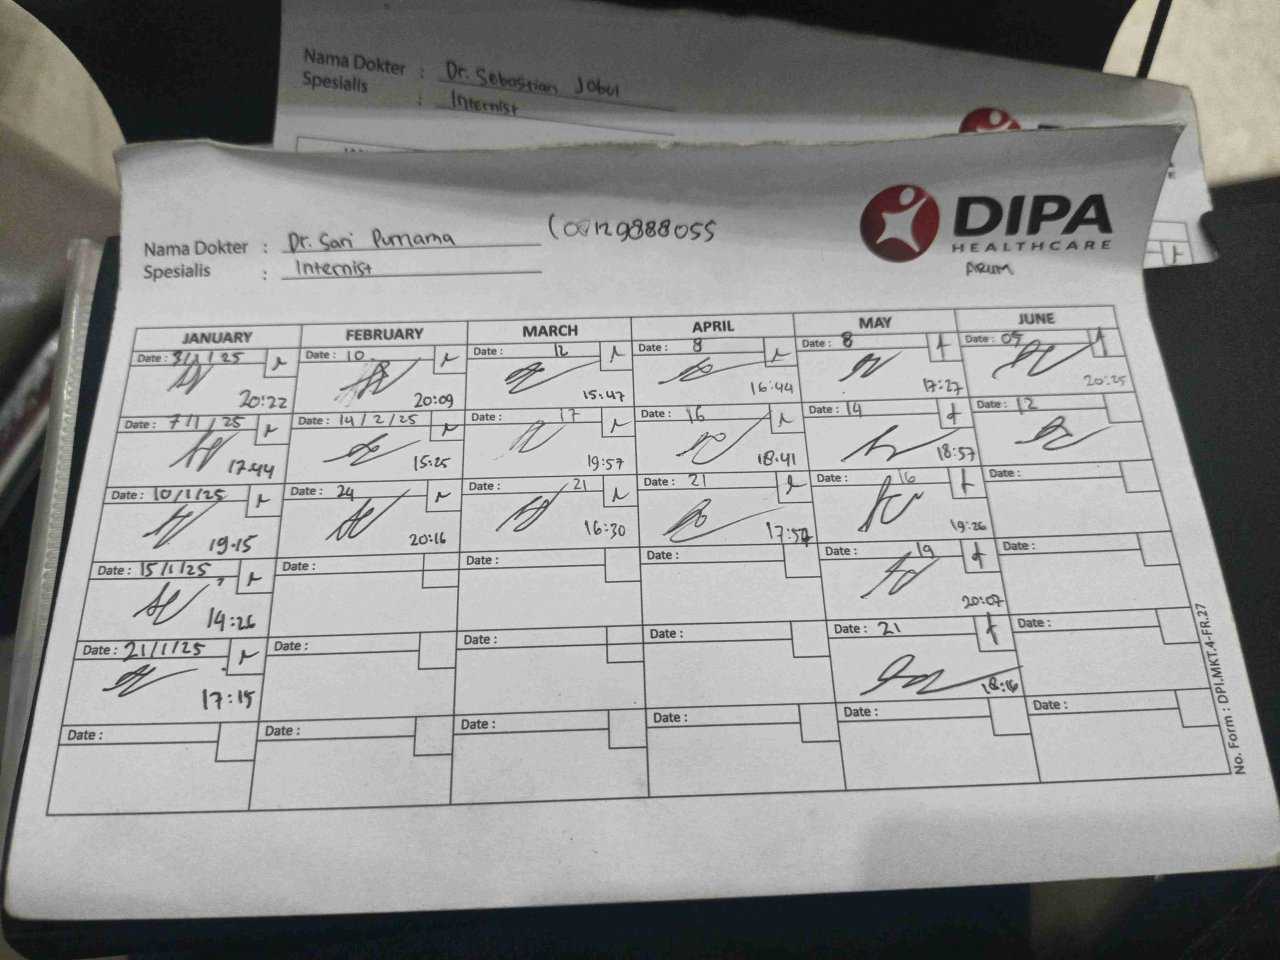 Nama Dokter : Dr. Sebastian Jobul
Spesialis : Internist
Nama Dokter : Dr. Sari Purnama
Spesialis : Internist
DIPA
HEALTHCARE
JANUARY FEBRUARY MARCH APRIL MAY JUNE
Date : 3/1/25 Date : 10 Date : 12 Date : 8 Date : 8 Date : 05
20:22 20:09 15:47 16:44 17:27 20:25
Date : 7/1/25 Date : 14/2/25 Date : 17 Date : 16 Date : 14 Date : 12
17:44 15:25 19:57 18:41 18:57
Date : 10/1/25 Date : 24 Date : 21 Date : 21 Date : 16 Date :
19.15 20:16 16:30 17:57 19:26
Date : 15/1/25 Date : Date : Date : Date : 19 Date :
14:26 20:07
Date : 21/1/25 Date : Date : Date : Date : 21 Date :
17:15 18:16
Date : Date : Date : Date : Date : Date :
No. Form : DPI.MKT.4-FR.27